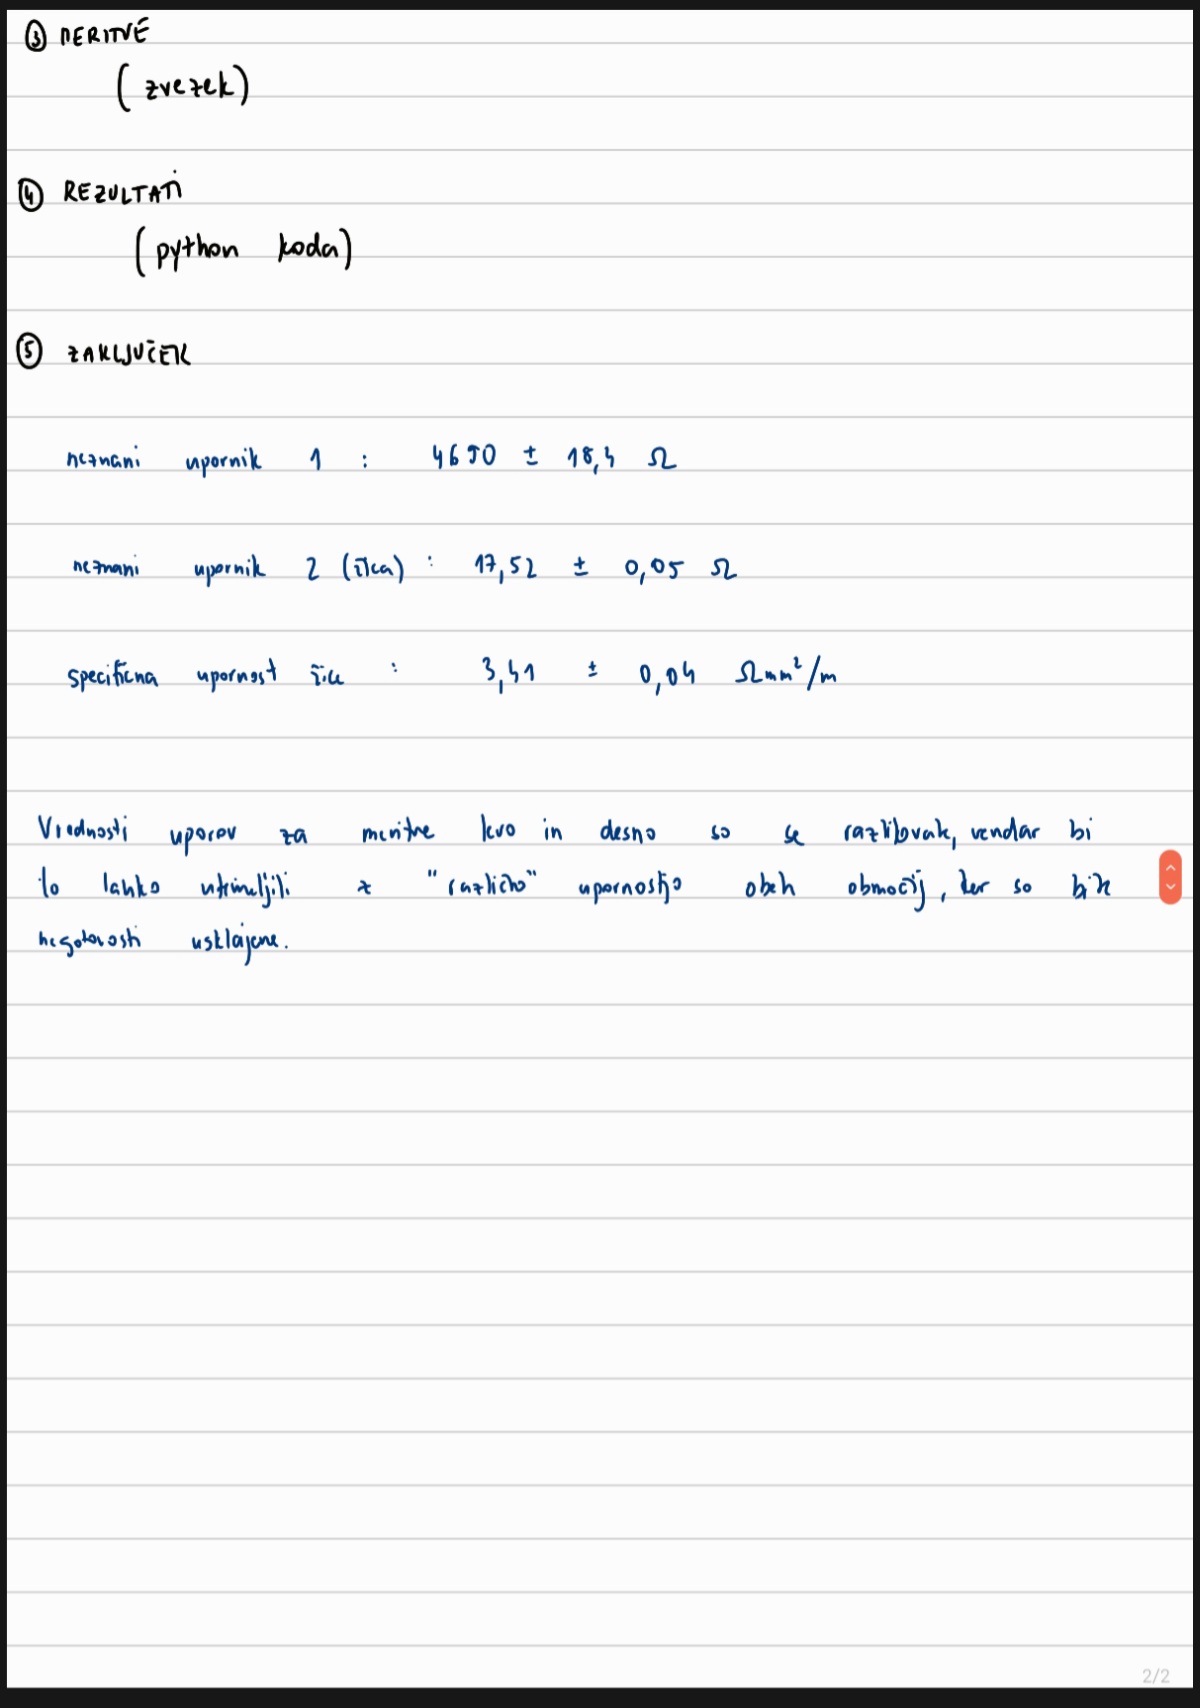 ③ MERITVE
(zvezek)
④ REZULTATI
(python koda)
⑤ ZAKLJUČEK
neznani upornik 1 : 4690 ± 18,4 Ω
neznani upornik 2 (žica) : 17,52 ± 0,05 Ω
specifična upornost žice : 3,41 ± 0,04 Ωmm²/m
Vrednosti uporov za meritve levo in desno so se razlikovale, vendar bi
to lahko utemeljili z "različno" upornostjo obeh območij, ker so bile
negotovosti usklajene.
2/2